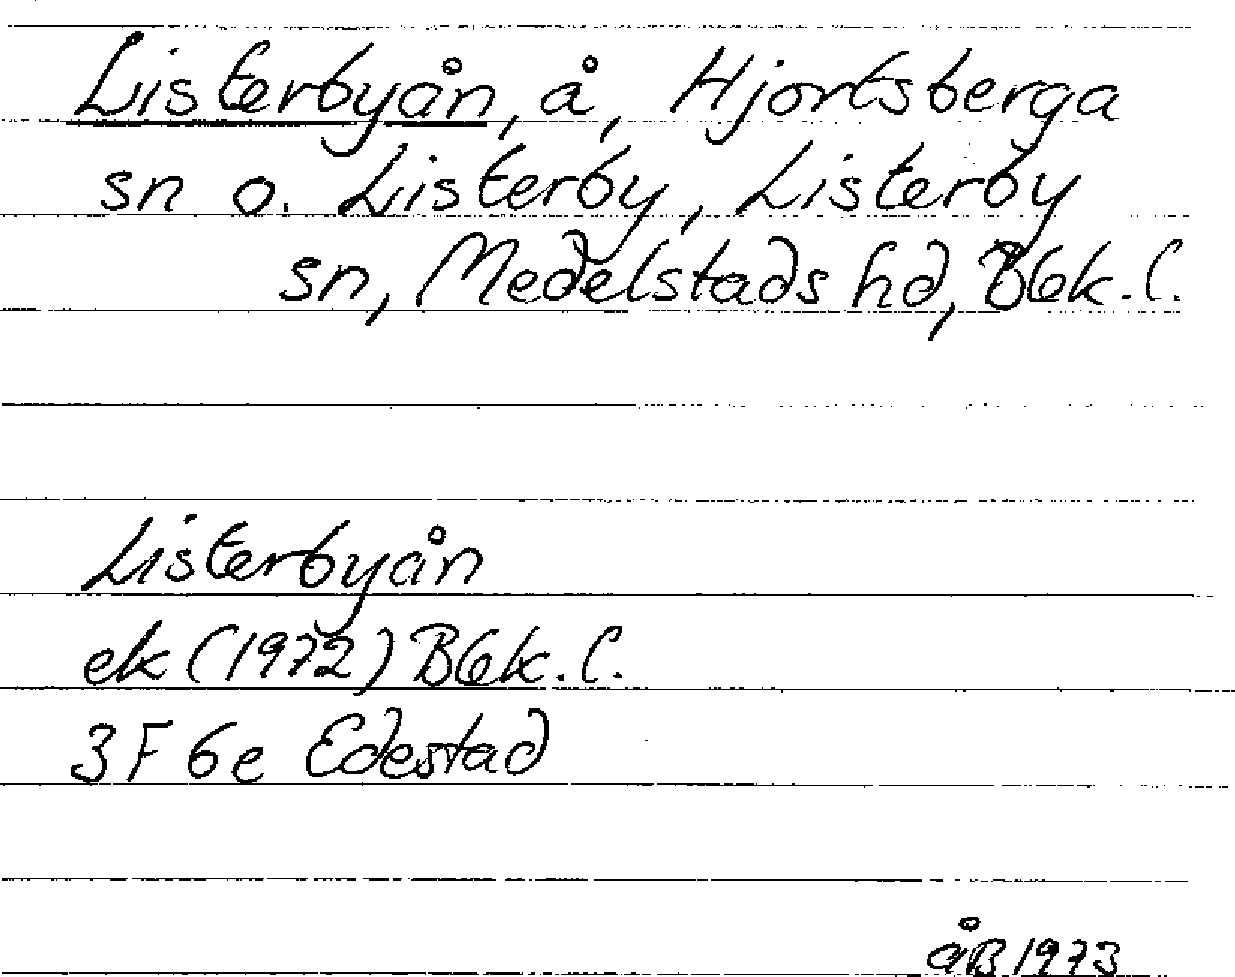 Listerbyån, å, Hjortsberga
sn o. Listerby, Listerby
sn, Medelstads hd, Blek. l.
Listerbyån
ek (1972) Blek. l.
3F 6e Edestad
åB 1973